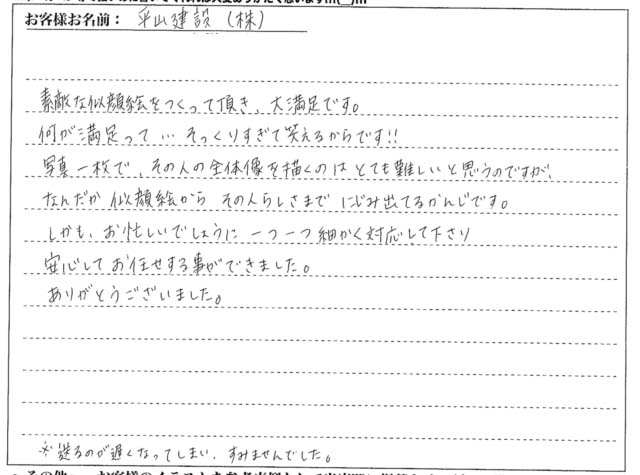 お客様お名前： 平山建設（株）
素敵な似顔絵をつくって頂き、大満足です。
何が満足って … そっくりすぎて笑えるからです!!
写真一枚で、その人の全体像を描くのは とても難しいと思うのですが、
なんだか 似顔絵から その人らしさまで にじみ出てるかんじです。
しかも、お忙しいでしょうに 一つ一つ細かく対応して下さり
安心して お任せする事ができました。
ありがとうございました。
※送るのが遅くなってしまい、すみませんでした。